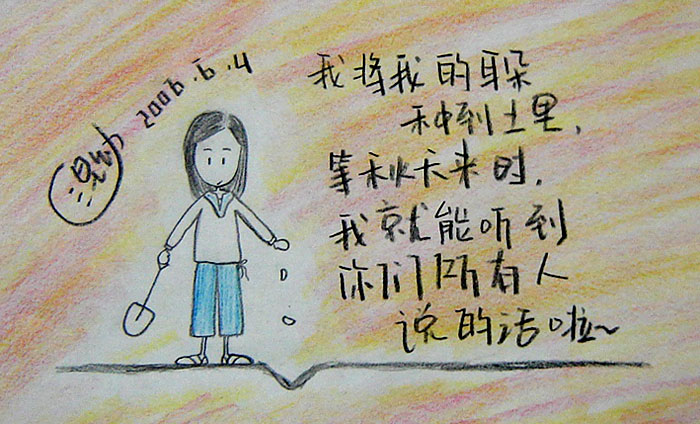 2006.6.4
我将我的耳朵
种到土里,
等秋天来时,
我就能听到
你们所有人
说的话啦~